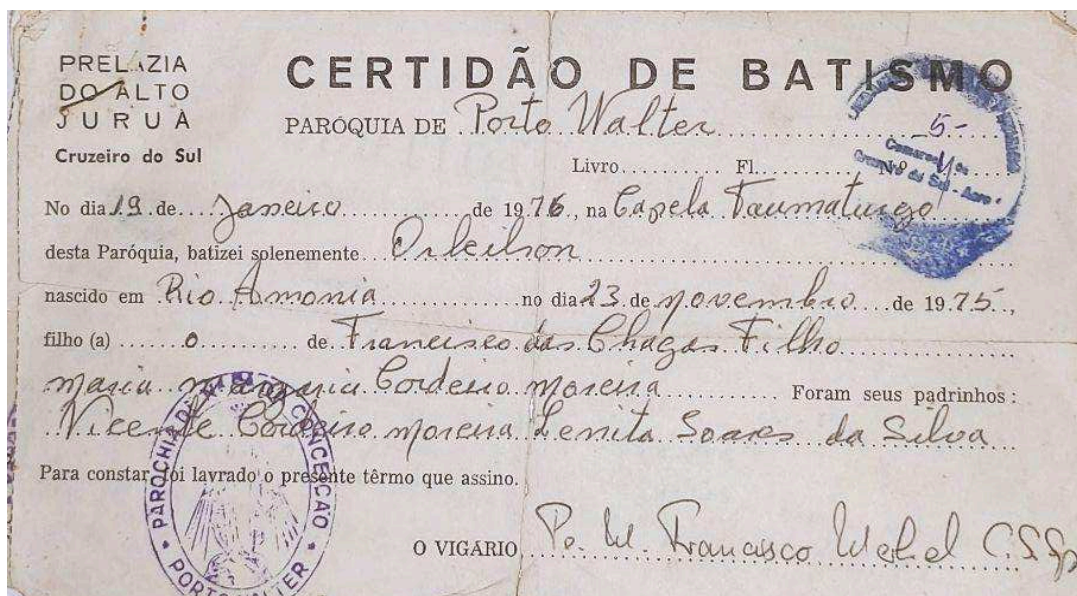 PRELAZIA
DO ALTO
JURUÁ
Cruzeiro do Sul
CERTIDÃO DE BATISMO
PARÓQUIA DE Porto Walter
-5-
Livro.......... Fl.......... Nº
Comarca de
Cruzeiro do Sul - Acre
No dia 19 de Janeiro de 1976, na Capela Taumaturgo
desta Paróquia, batizei solenemente Orleilson
nascido em Rio Amonia no dia 23 de novembro de 1975,
filho (a) o de Francisco das Chagas Filho
maria Cordeiro moreira Foram seus padrinhos:
Vicente Cordeiro moreira Lenita Soares da Silva
Para constar foi lavrado o presente têrmo que assino.
O VIGÁRIO Pe. W. Francisco C.S.Sp
PAROCHIA DE CONCEÇÃO
PORTO WALTER